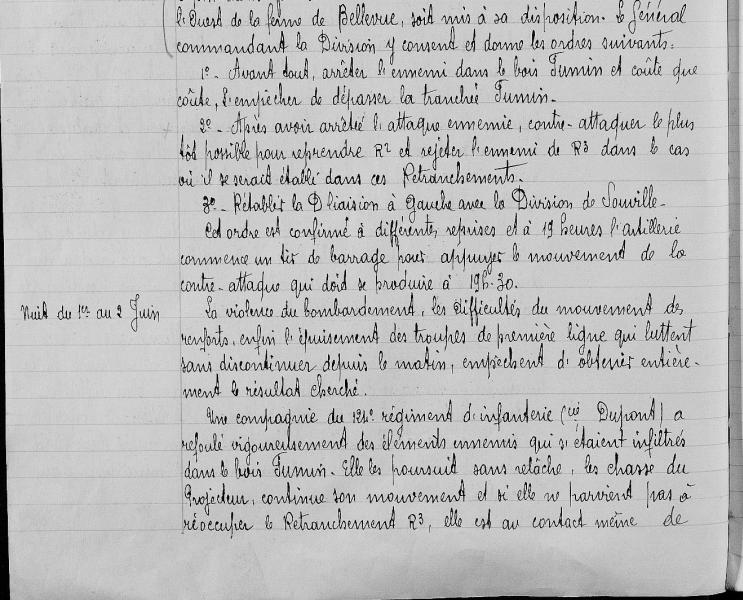 l'Ouest de la ferme de Bellevue, soit mis à sa disposition. Le Général
commandant la Division y consent et donne les ordres suivants:
1º- Avant tout, arrêter l'ennemi dans le bois Fumin et coûte que
coûte, l'empêcher de dépasser la tranchée Fumin.
2º- Après avoir arrêté l'attaque ennemie, contre-attaquer le plus
tôt possible pour reprendre R2 et rejeter l'ennemi de R3 dans le cas
où il se serait établi dans ces Retranchements.
3º- Rétablir la liaison à Gauche avec la Division de Souville.
Cet ordre est confirmé à différentes reprises et à 19 heures l'artillerie
commence un tir de barrage pour appuyer le mouvement de la
contre-attaque qui doit se produire à 19h.30.
Nuit du 1er au 2 Juin
La violence du bombardement, les difficultés du mouvement des
renforts, enfin l'épuisement des troupes de première ligne qui luttent
sans discontinuer depuis le matin, empêchent d'obtenir entière-
ment le résultat cherché.
Une compagnie du 124e régiment d'infanterie (Cie Dupont) a
refoulé vigoureusement des éléments ennemis qui s'étaient infiltrés
dans le bois Fumin. Elle les poursuit sans relâche, les chasse du
Projecteur, continue son mouvement et si elle ne parvient pas à
réoccuper le Retranchement R3, elle est au contact même de